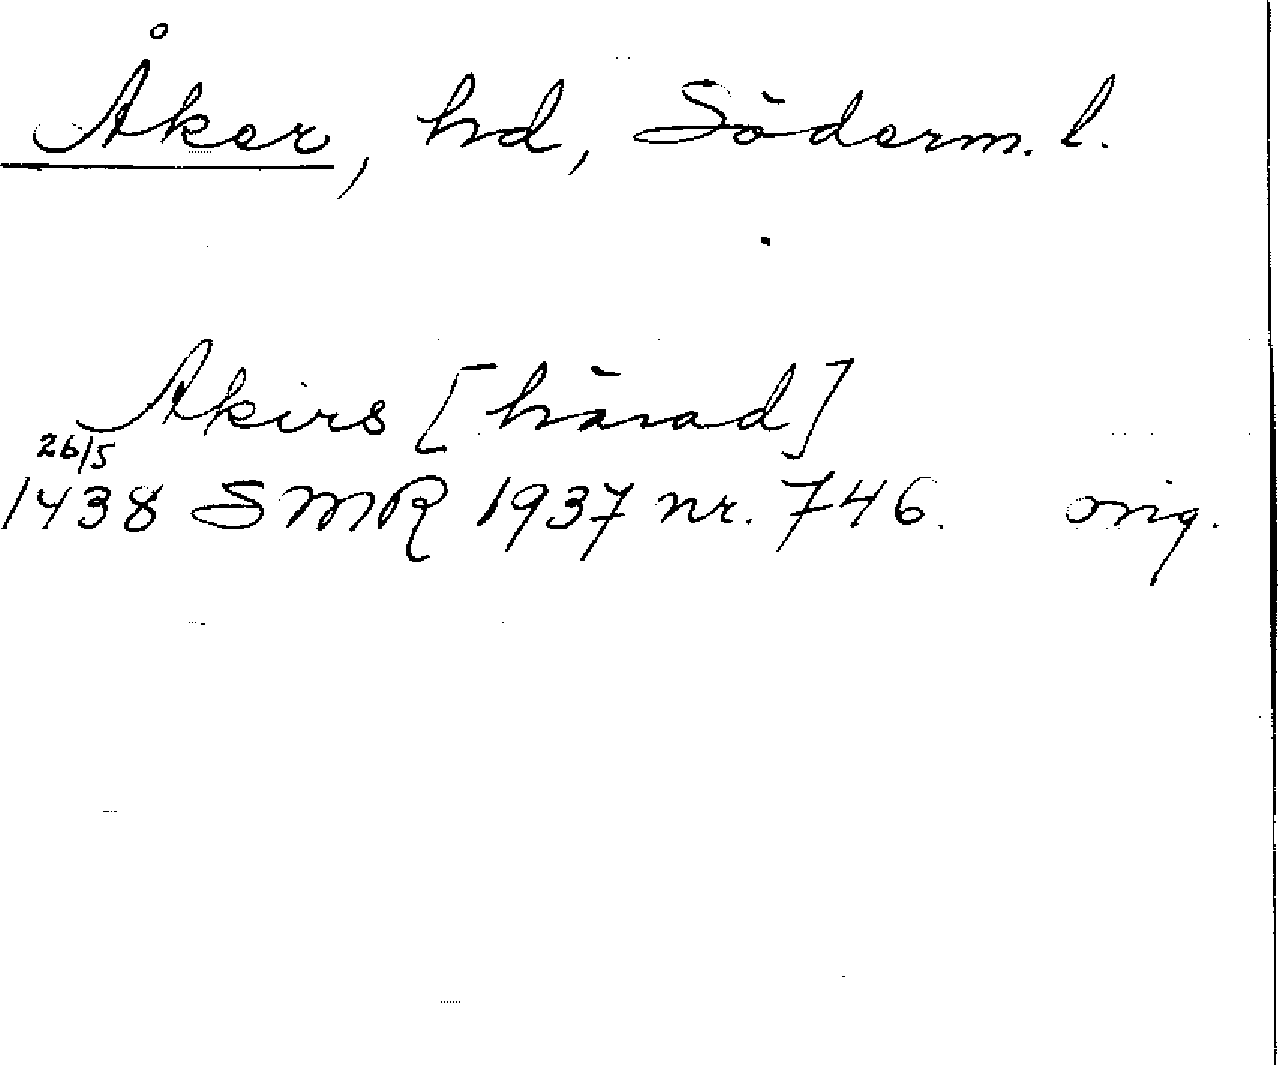 Åker, hd, Söderm. l.
Akirs [härad]
26/5
1438 SMR 1937 nr. 746. orig.